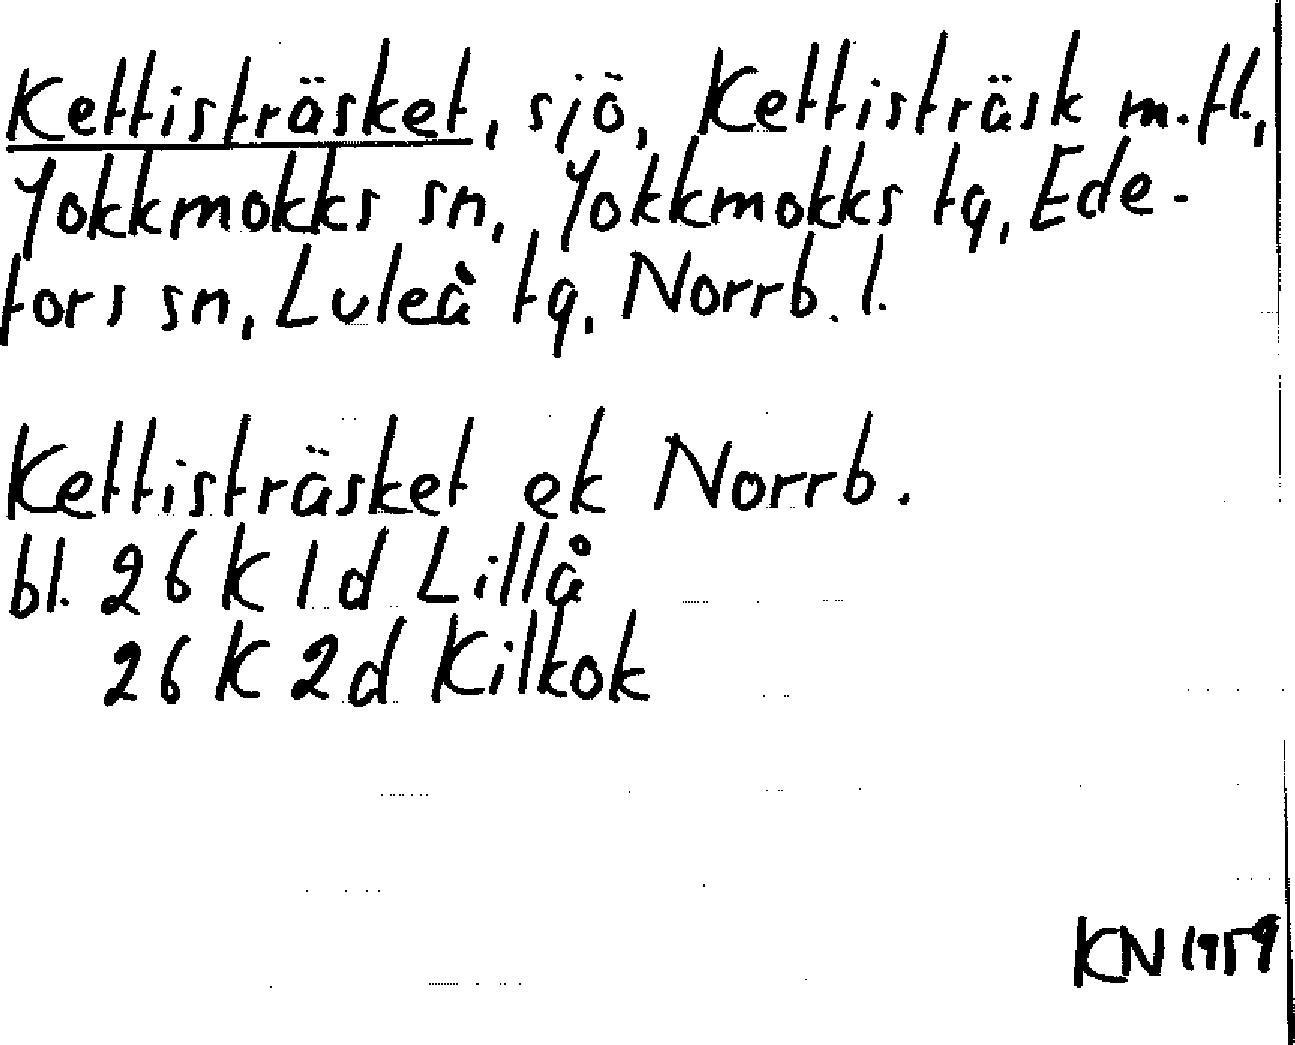 Kettisträsket, sjö, Kettisträsk m.fl.,
Jokkmokks sn, Jokkmokks tg, Ede-
fors sn, Luleå tg, Norrb. l.
Kettisträsket ek Norrb.
bl. 26 K 1d Lillå
26 K 2d Kilkok
KN 1959